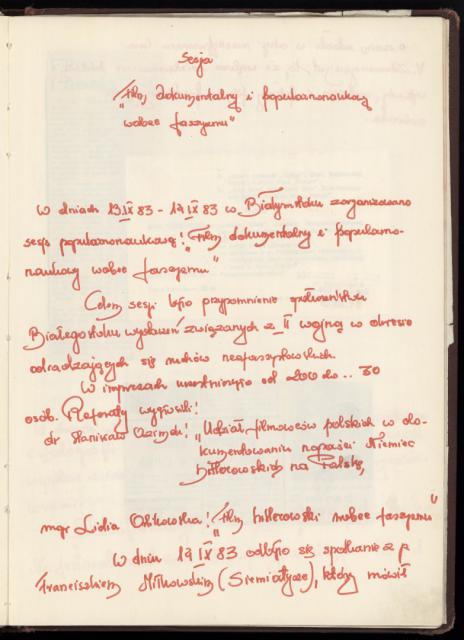 Sesja
"Film dokumentalny i popularnonaukowy
wobec faszyzmu"
W dniach 13 IX 83 - 17 IX 83 w Białymstoku zorganizowano
sesję popularnonaukową: "Film dokumentalny i popularno-
naukowy wobec faszyzmu"
Celem sesji było przypomnienie społeczeństwu
Białegostoku wydarzeń związanych z II wojną w okresie
odradzających się ruchów neofaszystowskich.
W imprezach uczestniczyło od 200 do .. 30
osób. Referaty wygłosili:
dr Stanisław Ozimek: "Udział filmowców polskich w do-
kumentowaniu napaści Niemiec
hitlerowskich na Polskę,
mgr Lidia: "Film hitlerowski wobec faszyzmu"
W dniu 17 IX 83 odbyło się spotkanie z p
Franciszkiem Miłkowskim (Siemiatycze), który mówił